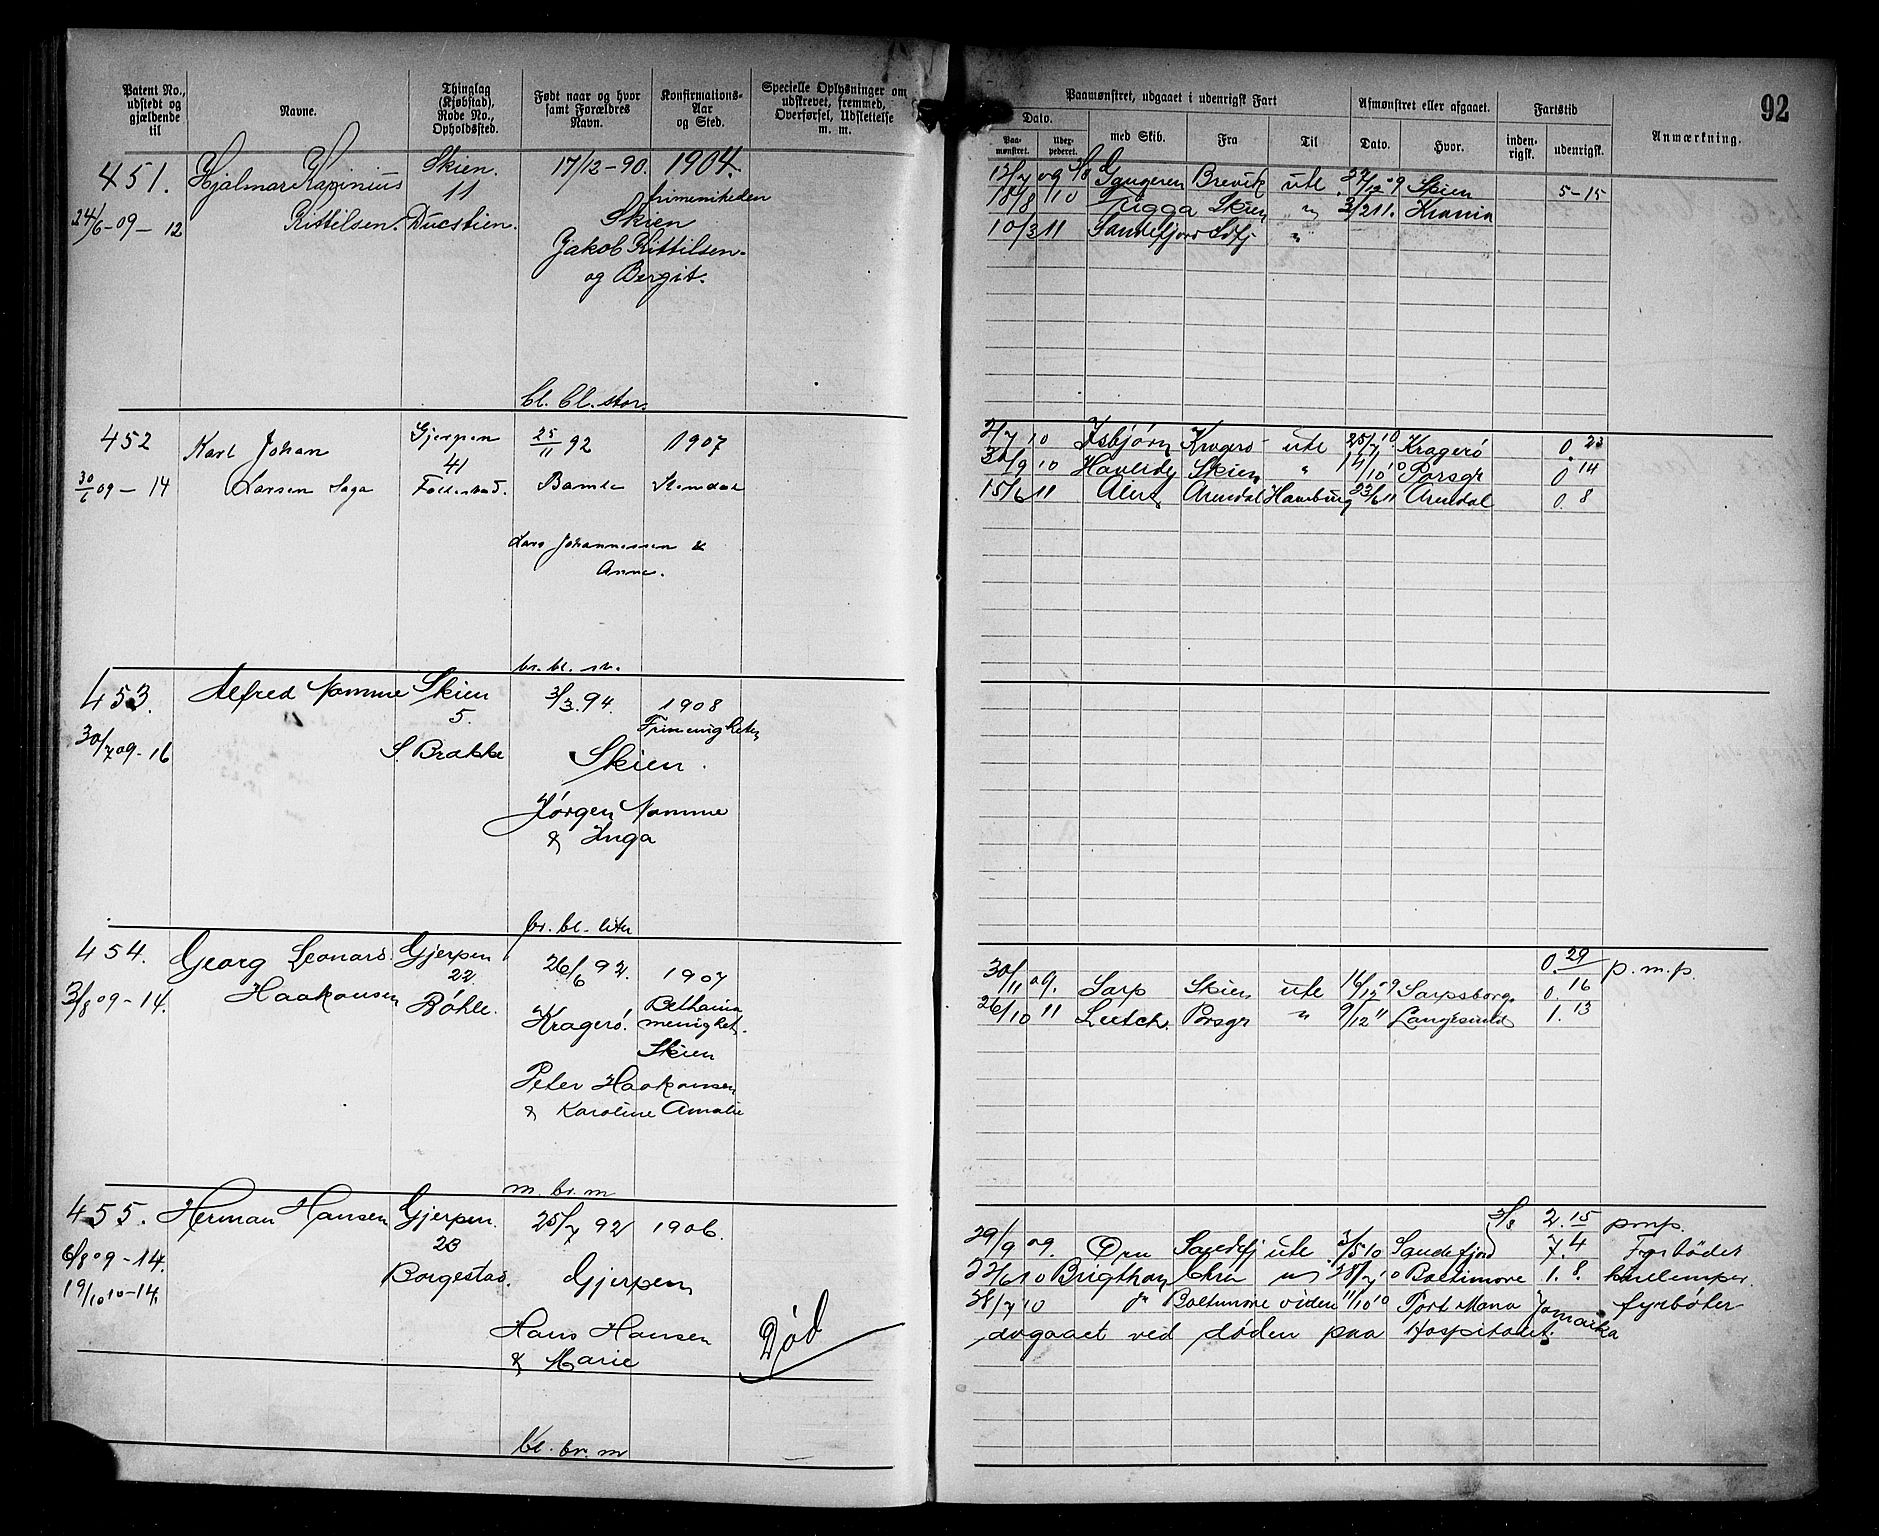 92
Patent No., udstedt og gjældende til
Navne.
Thinglag (Kjøbstad), Rode No., Opholdssted.
Født naar og hvor samt Forældres Navn.
Konfirmations-Aar og Sted.
Specielle Oplysninger om udstrevet, fremmed, Overførsel, Udslettelse m. m.
Paamønstret, udgaaet i udenrigsk Fart
Afmønstret eller afgaaet.
Fartstid
Anmærkning.
Dato.
Paa-mønstret.
Udex-pederet.
med Skib.
Fra
Til
Dato.
Hvor.
inden-rigsk.
udenrigsk.
451. Hjalmar Skien. 17/12-90. 1904.
11 frimenikeden
24/6-09-12 Kittilsen. Skien
Jakob Kittilsen
og Bergit.
bl. bl. stor.
12/7 09 Brevik ute 22/12 09 Skien 5-15
18/8 10 Skien " 3/2 11.
10/3 11 "
452 Karl Johan Gjerpen 25/11 92 1907
41
30/6 09-14 Larsen Bamle
Lars Johannessen &
Anne.
br. bl. m.
2/7 10 Isbjørn Kragerø ute 25/7 10 Kragerø 0. 23
30/9 10 Skien " 14/10 10 Porsgr 0 14
15/6 11 Alert Arendal Hamburg 23/6 11 Arendal 0. 8
453. Alfred Namme Skien 3/3.94. 1908
5.
30/7 09-16 S. Brekke Skien.
Jørgen Namme
& Inga
br. bl. liten
454. Georg Leonard Gjerpen 26/6 92. 1907
22
3/8 09-14. Haakonsen Bøhle. Kragerø. Bethania menighet. Skien
Peter Haakonsen
& Karoline Amalie
m. br. m
0. 29 p.m.p.
30/11 09. Sarp Skien ute 16/12 09 Sarpsborg. 0. 16
26/10 11 Porsgr " 9/12 11 Langesund 1. 13
455. Herman Hansen Gjerpen. 25/7 92 1906.
23
6/8 09-14. Borgestad. Gjerpen
19/10 10-14.
Hans Hansen
& Marie
Død
bl. br. m
2/8 2. 15 pmp.
29/9 09. Sandefj ute 3/5 10 Sandefjord 7. 4 Fyrbøder
22/6 10 " 28/7 10 Baltimore 1. 8. kullemper.
28/7 10 " Baltimore videre 11/10 10 Port Maria Jamaika fyrbøter
avgaaet ved døden paa Hospitalet.